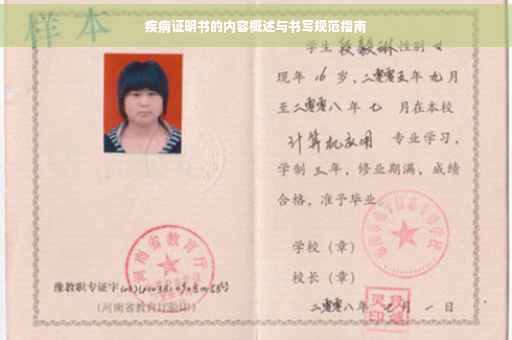 疾病证明书的内容概述与书写规范指南
样本
学生 段毅琳 性别 女
现年 16 岁,二零零五年 九 月
至二零零八年 七 月在本校
计算机应用 专业学习,
学制 三 年,修业期满,成绩
合格,准予毕业
学校(章)
校长(章)
二零零八年 七 月 一 日
河南省教育厅
豫教职专证字
(河南省教育厅验印)